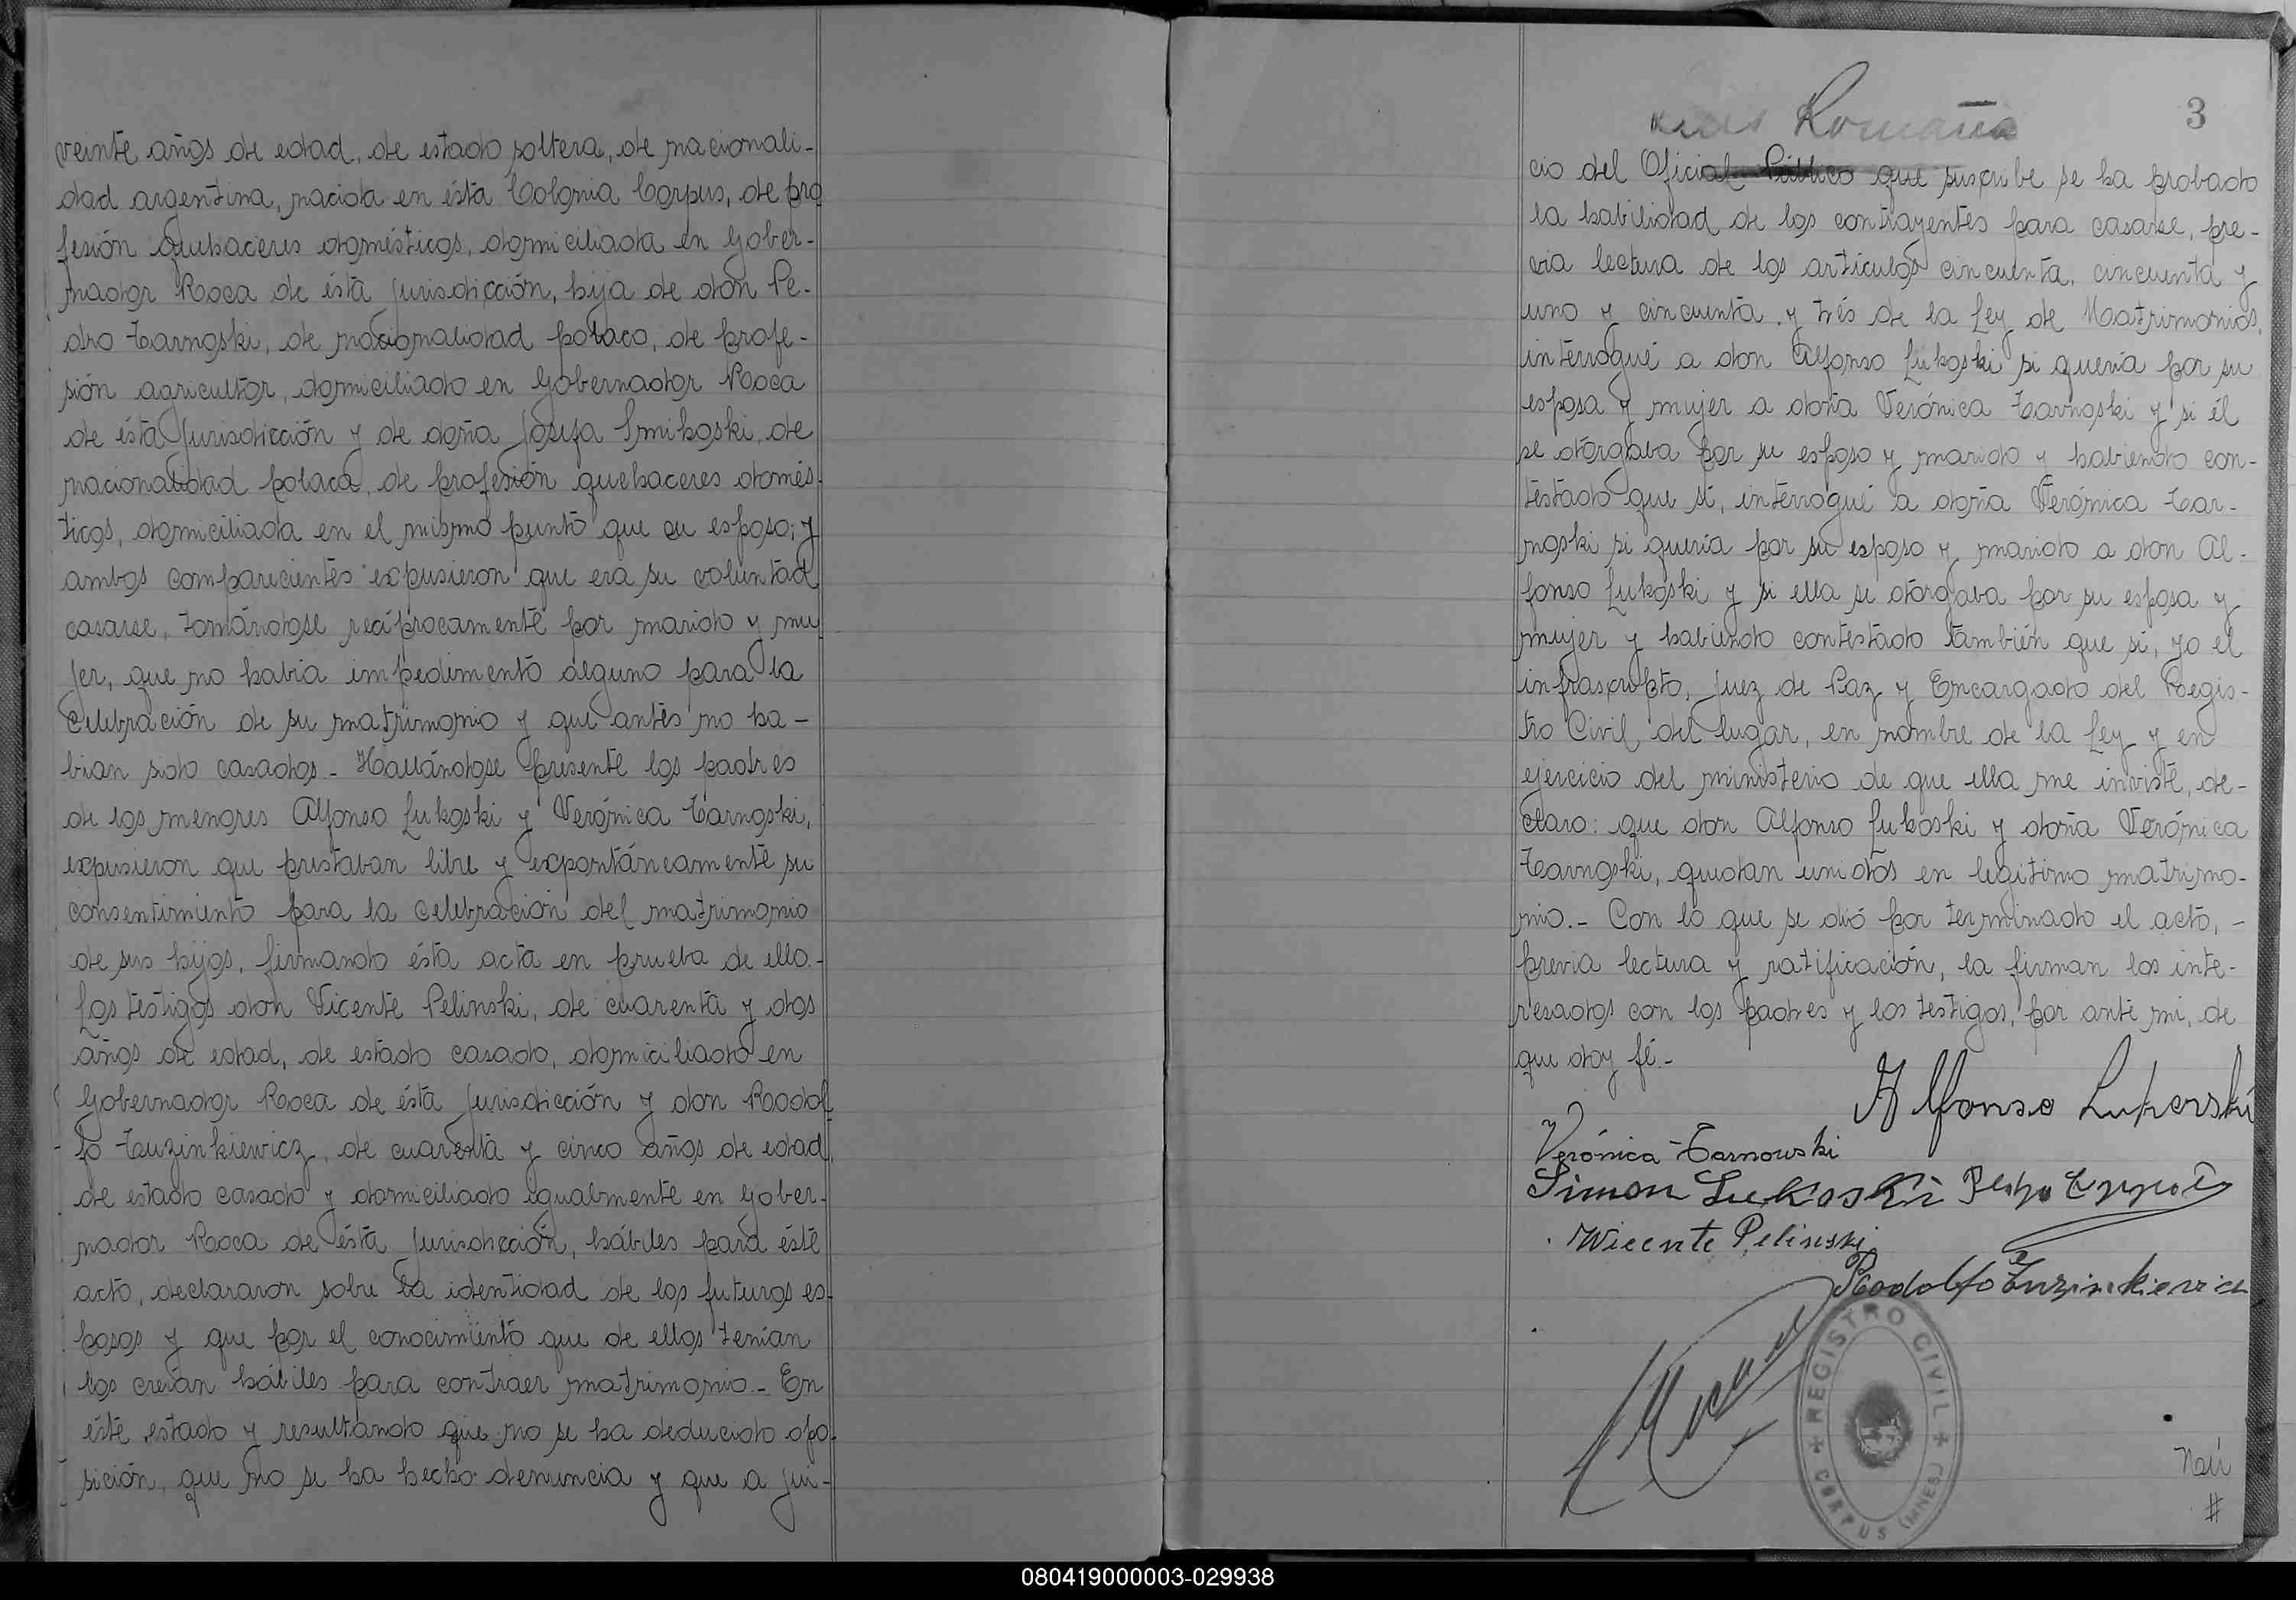 veinte años de edad, de estado soltera, de nacionali-
dad argentina, nacida en ésta Colonia Corpus, de pro
fesión quehaceres domésticos, domiciliada en Gober-
nador Roca de ésta jurisdicción, hija de don Pe-
dro Tarnoski, de nacionalidad polaco, de profe-
sión agricultor, domiciliado en Gobernador Roca
de ésta jurisdicción y de doña Josefa Smikoski, de
nacionalidad polaca, de profesión quehaceres domés-
ticos, domiciliada en el mismo punto que su esposo; y
ambos comparecientes expusieron que era su voluntad
casarse, tomándose recíprocamente por marido y mu
jer, que no había impedimento alguno para la
celebración de su matrimonio y que antes no ha-
bian sido casados.- Hallándose presente los padres
de los menores Alfonso Lukoski y Verónica Tarnoski,
expusieron que prestaban libre y expontáneamente su
consentimiento para la celebración del matrimonio
de sus hijos, firmando ésta acta en prueba de ello.-
Los testigos don Vicente Pelinski, de cuarenta y dos
años de edad, de estado casado, domiciliado en
Gobernador Roca de ésta jurisdicción y don Rodol
fo Tuzinkiewicz, de cuarenta y cinco años de edad,
de estado casado y domiciliado igualmente en Gober-
nador Roca de ésta jurisdicción, hábiles para éste
acto, declararon sobre la identidad de los futuros es-
posos y que por el conocimiento que de ellos tenían
los creían hábiles para contraer matrimonio.- En
éste estado y resultando que no se ha deducido opo-
sición, que no se ha hecho denuncia y que a jui-
Romaña
3
cio del Oficial Público que suscribe se ha probado
la habilidad de los contrayentes para casarse, pre-
via lectura de los artículos cincuenta, cincuenta y
uno y cincuenta y trés de la Ley de Matrimonios,
interrogué a don Alfonso Lukoski si quería por su
esposa y mujer a doña Verónica Tarnoski y si él
se otorgaba por su esposo y marido y habiendo con-
testado que sí, interrogué a doña Verónica Tar-
noski si quería por su esposo y marido a don Al-
fonso Lukoski y si ella se otorgaba por su esposa y
mujer y habiendo contestado también que sí, yo el
infrascripto, Juez de Paz y Encargado del Regis-
tro Civil del lugar, en nombre de la Ley y en
ejercicio del ministerio de que ella me inviste, de-
claro: que don Alfonso Lukoski y doña Verónica
Tarnoski, quedan unidos en legítimo matrimo-
nio.- Con lo que se dió por terminado el acto, -
previa lectura y ratificación, la firman los inte-
resados con los padres y los testigos, por ante mi, de
que doy fé.-
Alfonso Lukoski
Verónica Tarnowski
Simon Lukoski Pedro
Wicente Pelinski
Rodolfo Tuzinkievich
REGISTRO CIVIL
CORPUS (MNES.)
#
080419000003-029938